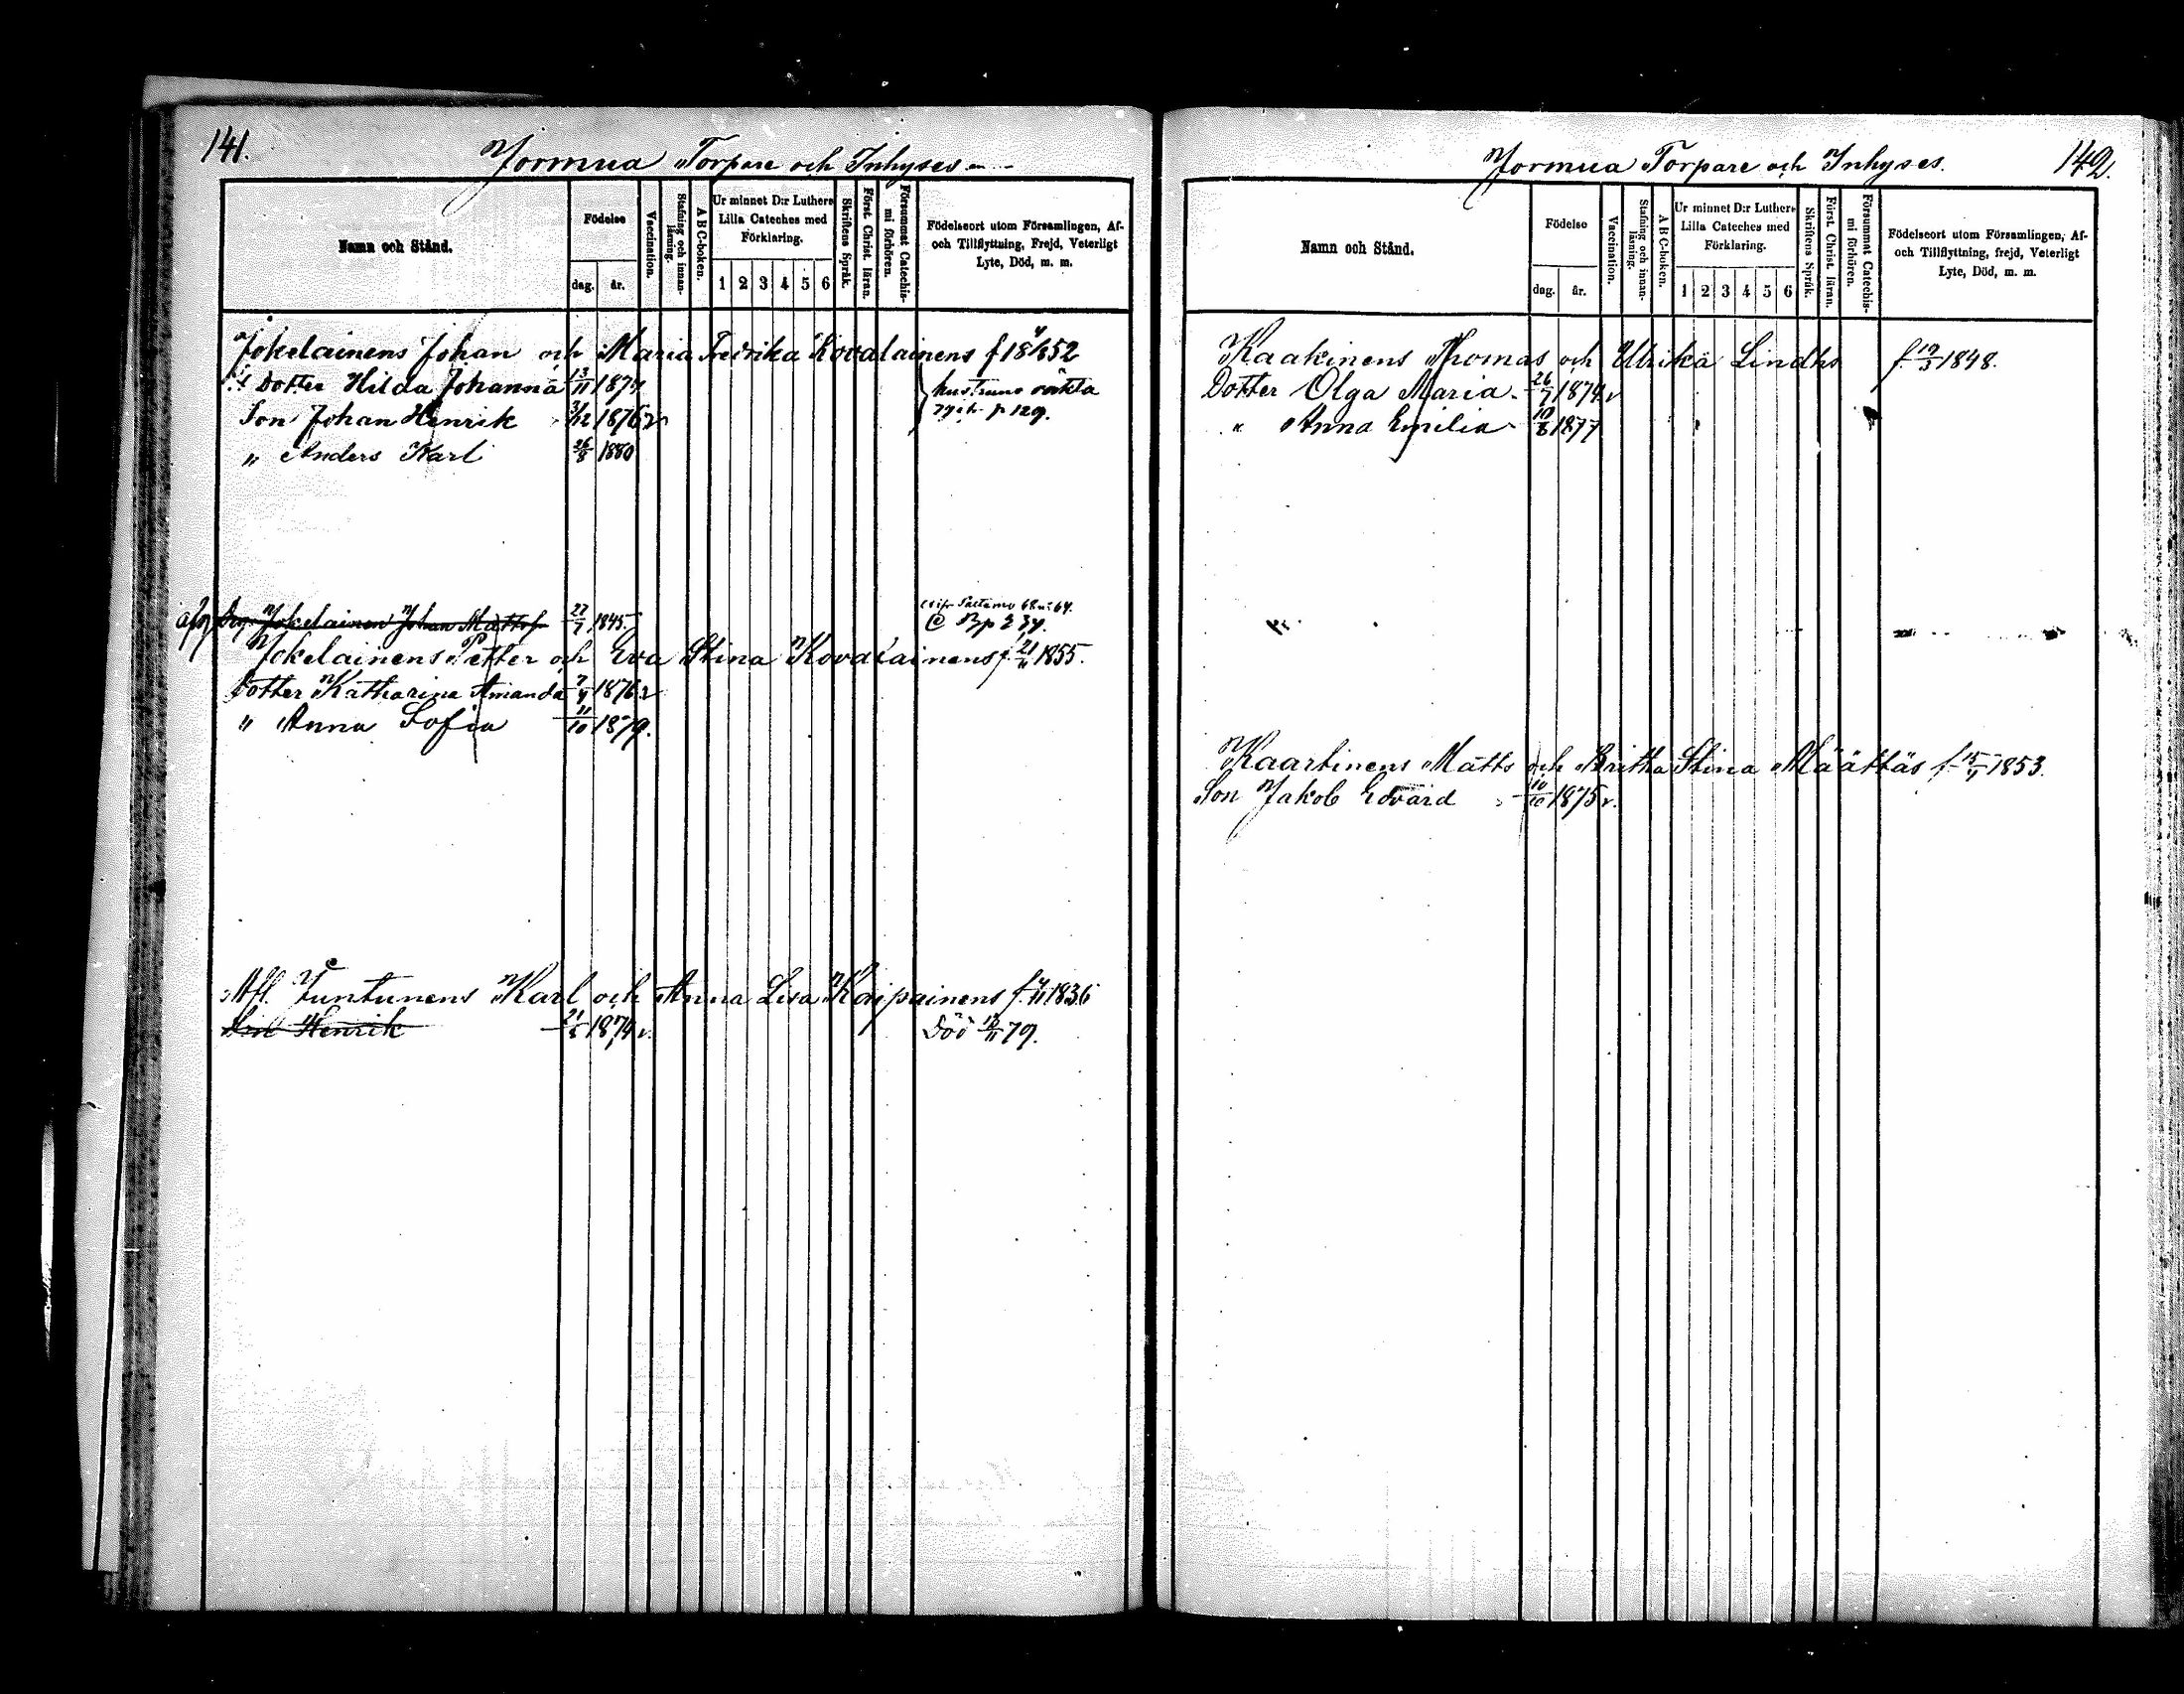 141.
Jormua Torpare och Inhyses
Namn och Stånd.
Födelse
dag.
år.
Vaccination.
Stafning och innan-
läsning.
A B C-boken.
Ur minnet D:r Luthers
Lilla Cateches med
Förklaring.
1 2 3 4 5 6
Skriftens Språk.
Först. Christ. läran.
Försummat Catechis-
mi förhören.
Födelseort utom Församlingen, Af-
och Tillflyttning, Frejd, Veterligt
Lyte, Död, m. m.
Jokelainens Johan och Maria Fredrika Kovalainens f 18 52
Dotter Hilda Johanna 13/11 1874 hustruns oäkta
Son Johan Henrik 3/12 1876 v p 129.
" Anders Karl 26/8 1880
Jokelainen Johan Mattsf 22/7 1845
Jokelainens Petter och Eva Stina Kovalainens f. 21/11 1855.
Dotter Katharina Amanda 7/9 1876 v
" Anna Sofia 11/10 1879.
Afl. Juntunens Karl och Anna Lisa Karpainens f. 1836
Henrik 21/5 1874 v. Död 79.
142.
Jormua Torpare och Inhyses.
Namn och Stånd.
Födelse
dag.
år.
Vaccination.
Stafning och innan-
läsning.
A B C-boken.
Ur minnet D:r Luthers
Lilla Cateches med
Förklaring.
1 2 3 4 5 6
Skriftens Språk.
Först. Christ. läran.
Försummat Catechis-
mi förhören.
Födelseort utom Församlingen, Af-
och Tillflyttning, frejd, Veterligt
Lyte, Död, m. m.
Kaakinens Thomas och Ulrika Lindhs f. 19/3 1848.
Dotter Olga Maria 26/7 1874 v
" Anna Emilia 10/8 1877
Kaartinens Matts och Britha Stina Määttäs f. 1853.
Son Jakob Edvard 10/10 1875 v.